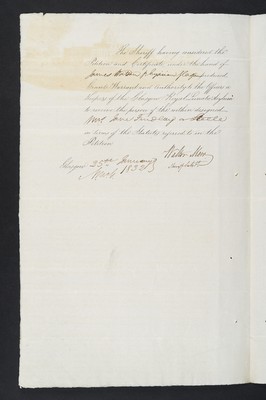 The Sheriff having considered the
Petition and Certificate under the hand of
James Physician Glasgow
Grants Warrant and Authority to the Officers or
Keepers of the Glasgow Royal Lunatic Asylum
to receive the person of the within designed
Mrs Jane Findlay or Steele
in terms of the Statute referred to in the
Petition
Glasgow 25th January
1832
Walter Moir
Subst